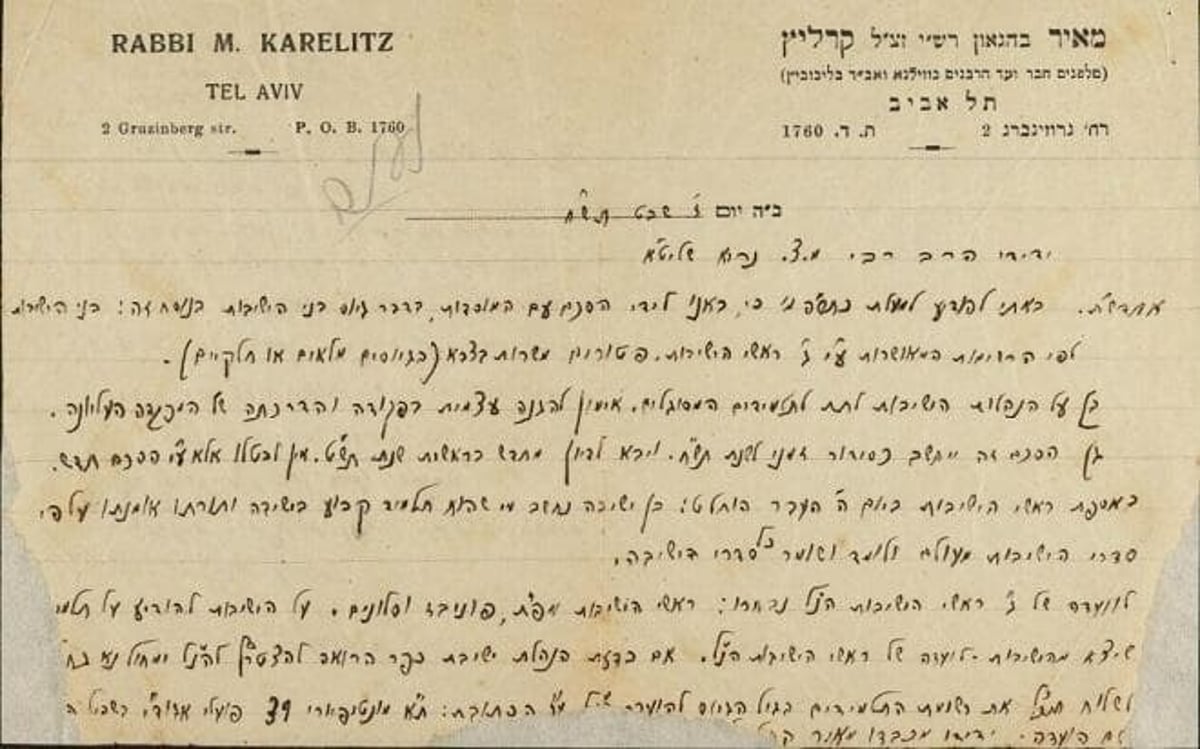 RABBI M. KARELITZ
TEL AVIV
2 Gruzinberg str. P. O. B. 1760
מאיר בהגאון רש״י זצ״ל קרליץ
(מלפנים חבר ועד הרבנים בווילנא ואב״ד בליכוביץ)
תל אביב
רח׳ גרוזינברג 2 ת. ד. 1760
ב״ה יום ז׳ שבט תש״ח
ידידי הרב רבי מ.צ. נריה שליט״א
אחדש״ת. באתי להודיע למעלת כתה״ר כי, באנו לידי הסכם עם המוסדות, בדבר גיוס בני הישיבות בנוסח זה: בני הישיבות
לפי הרשימות המאושרות ע״י ג׳ ראשי הישיבות. פטורים משרות בצבא (בגיוסים מלאים או חלקיים).
על הנהלות הישיבות לתת לתלמידים המסוגלים. אימון להגנה עצמית בפקודה והדרכתה של המפקדה העליונה.
הסכם זה ייחשב כסידור זמני לשנת תש״ח. ויבא לדיון מחדש בראשית שנת תש״ט. אין לבטלו אלא ע״י הסכם חדש.
באספת ראשי הישיבות ביום ה׳ העבר הוחלט: בן ישיבה נחשב מי שהוא תלמיד קבוע בישיבה ותורתו אומנתו על פי
סדרי הישיבות מעולם ולומד ושומר כל סדרי הישיבה.
לוועדה של ג׳ ראשי הישיבות הנ״ל נבחרו: ראשי הישיבות מפ״ת, פוניבז וסלונים. על הישיבות להודיע על תלמי
שיצא מהישיבות לועדה של ראשי הישיבות הנ״ל. אם בדעת הנהלת ישיבת כפר הרואה להצטרף להנ״ל ימחול נא
לשלוח את רשומת התלמידים בגיל הגיוס להועדה הכתובת: ת״א מונטיפיורי 39 פועלי אגוד״י בשביל
הועדה. ידידו מכבדו מאיר